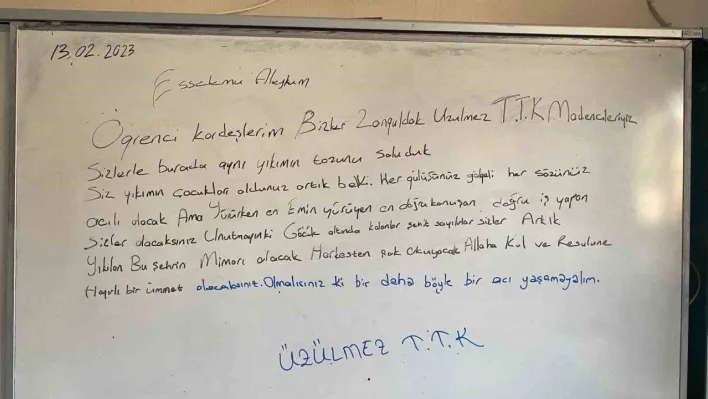 13.02.2023
Esselemü Aleyküm
Öğrenci kardeşlerim Bizler Zonguldak Üzülmez T.T.K Madencileriyiz
Sizlerle burada aynı yıkımın tozunu soluduk
Siz yıkımın çocukları oldunuz artık belki. Her gülüşünüz gölgeli her sözünüz
acılı olacak Ama Yürürken en Emin yürüyen en doğru konuşan doğru iş yapan
Sizler olacaksınız Unutmayınki Göçük altında kalanlar şehit sayılırlar sizler Artık
Yıkılan Bu Şehrin Mimarı olacak Herkesten çok okuyacak Allaha Kul ve Resulune
Hayırlı bir ümmet olacaksınız. Olmalısınız ki bir daha böyle bir acı yaşamayalım.
ÜZÜLMEZ T.T.K